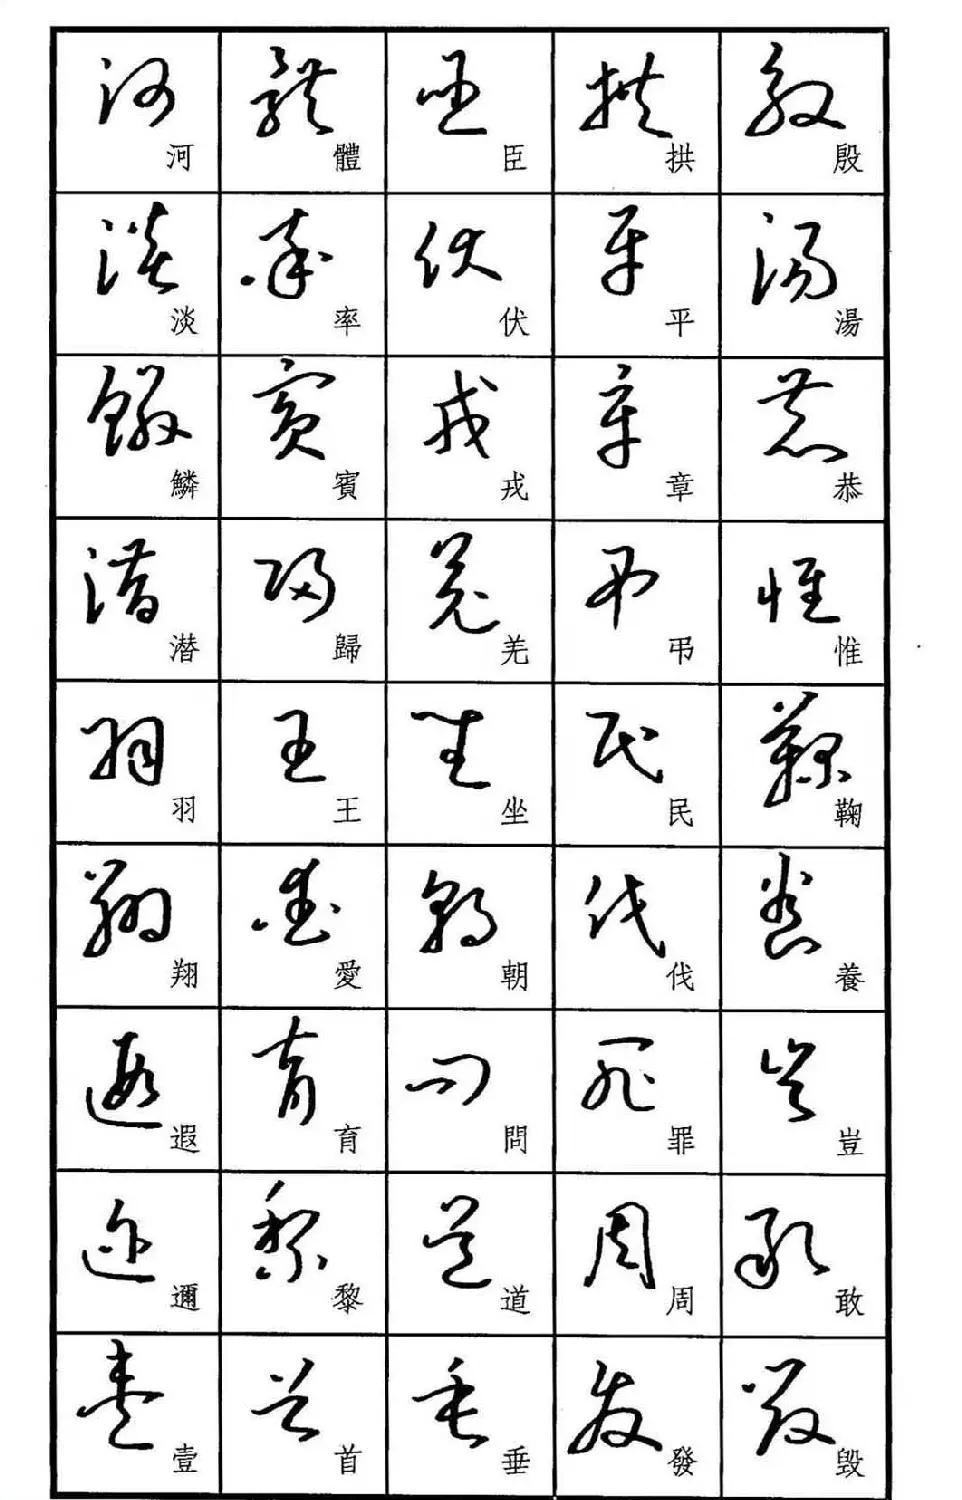 河淡鱗潜羽翔遐邇壹
體率賓歸王愛育黎首
臣伏戎羌坐朝問道垂
拱平章弔民伐罪周發
殷湯恭惟鞠養豈敢毀